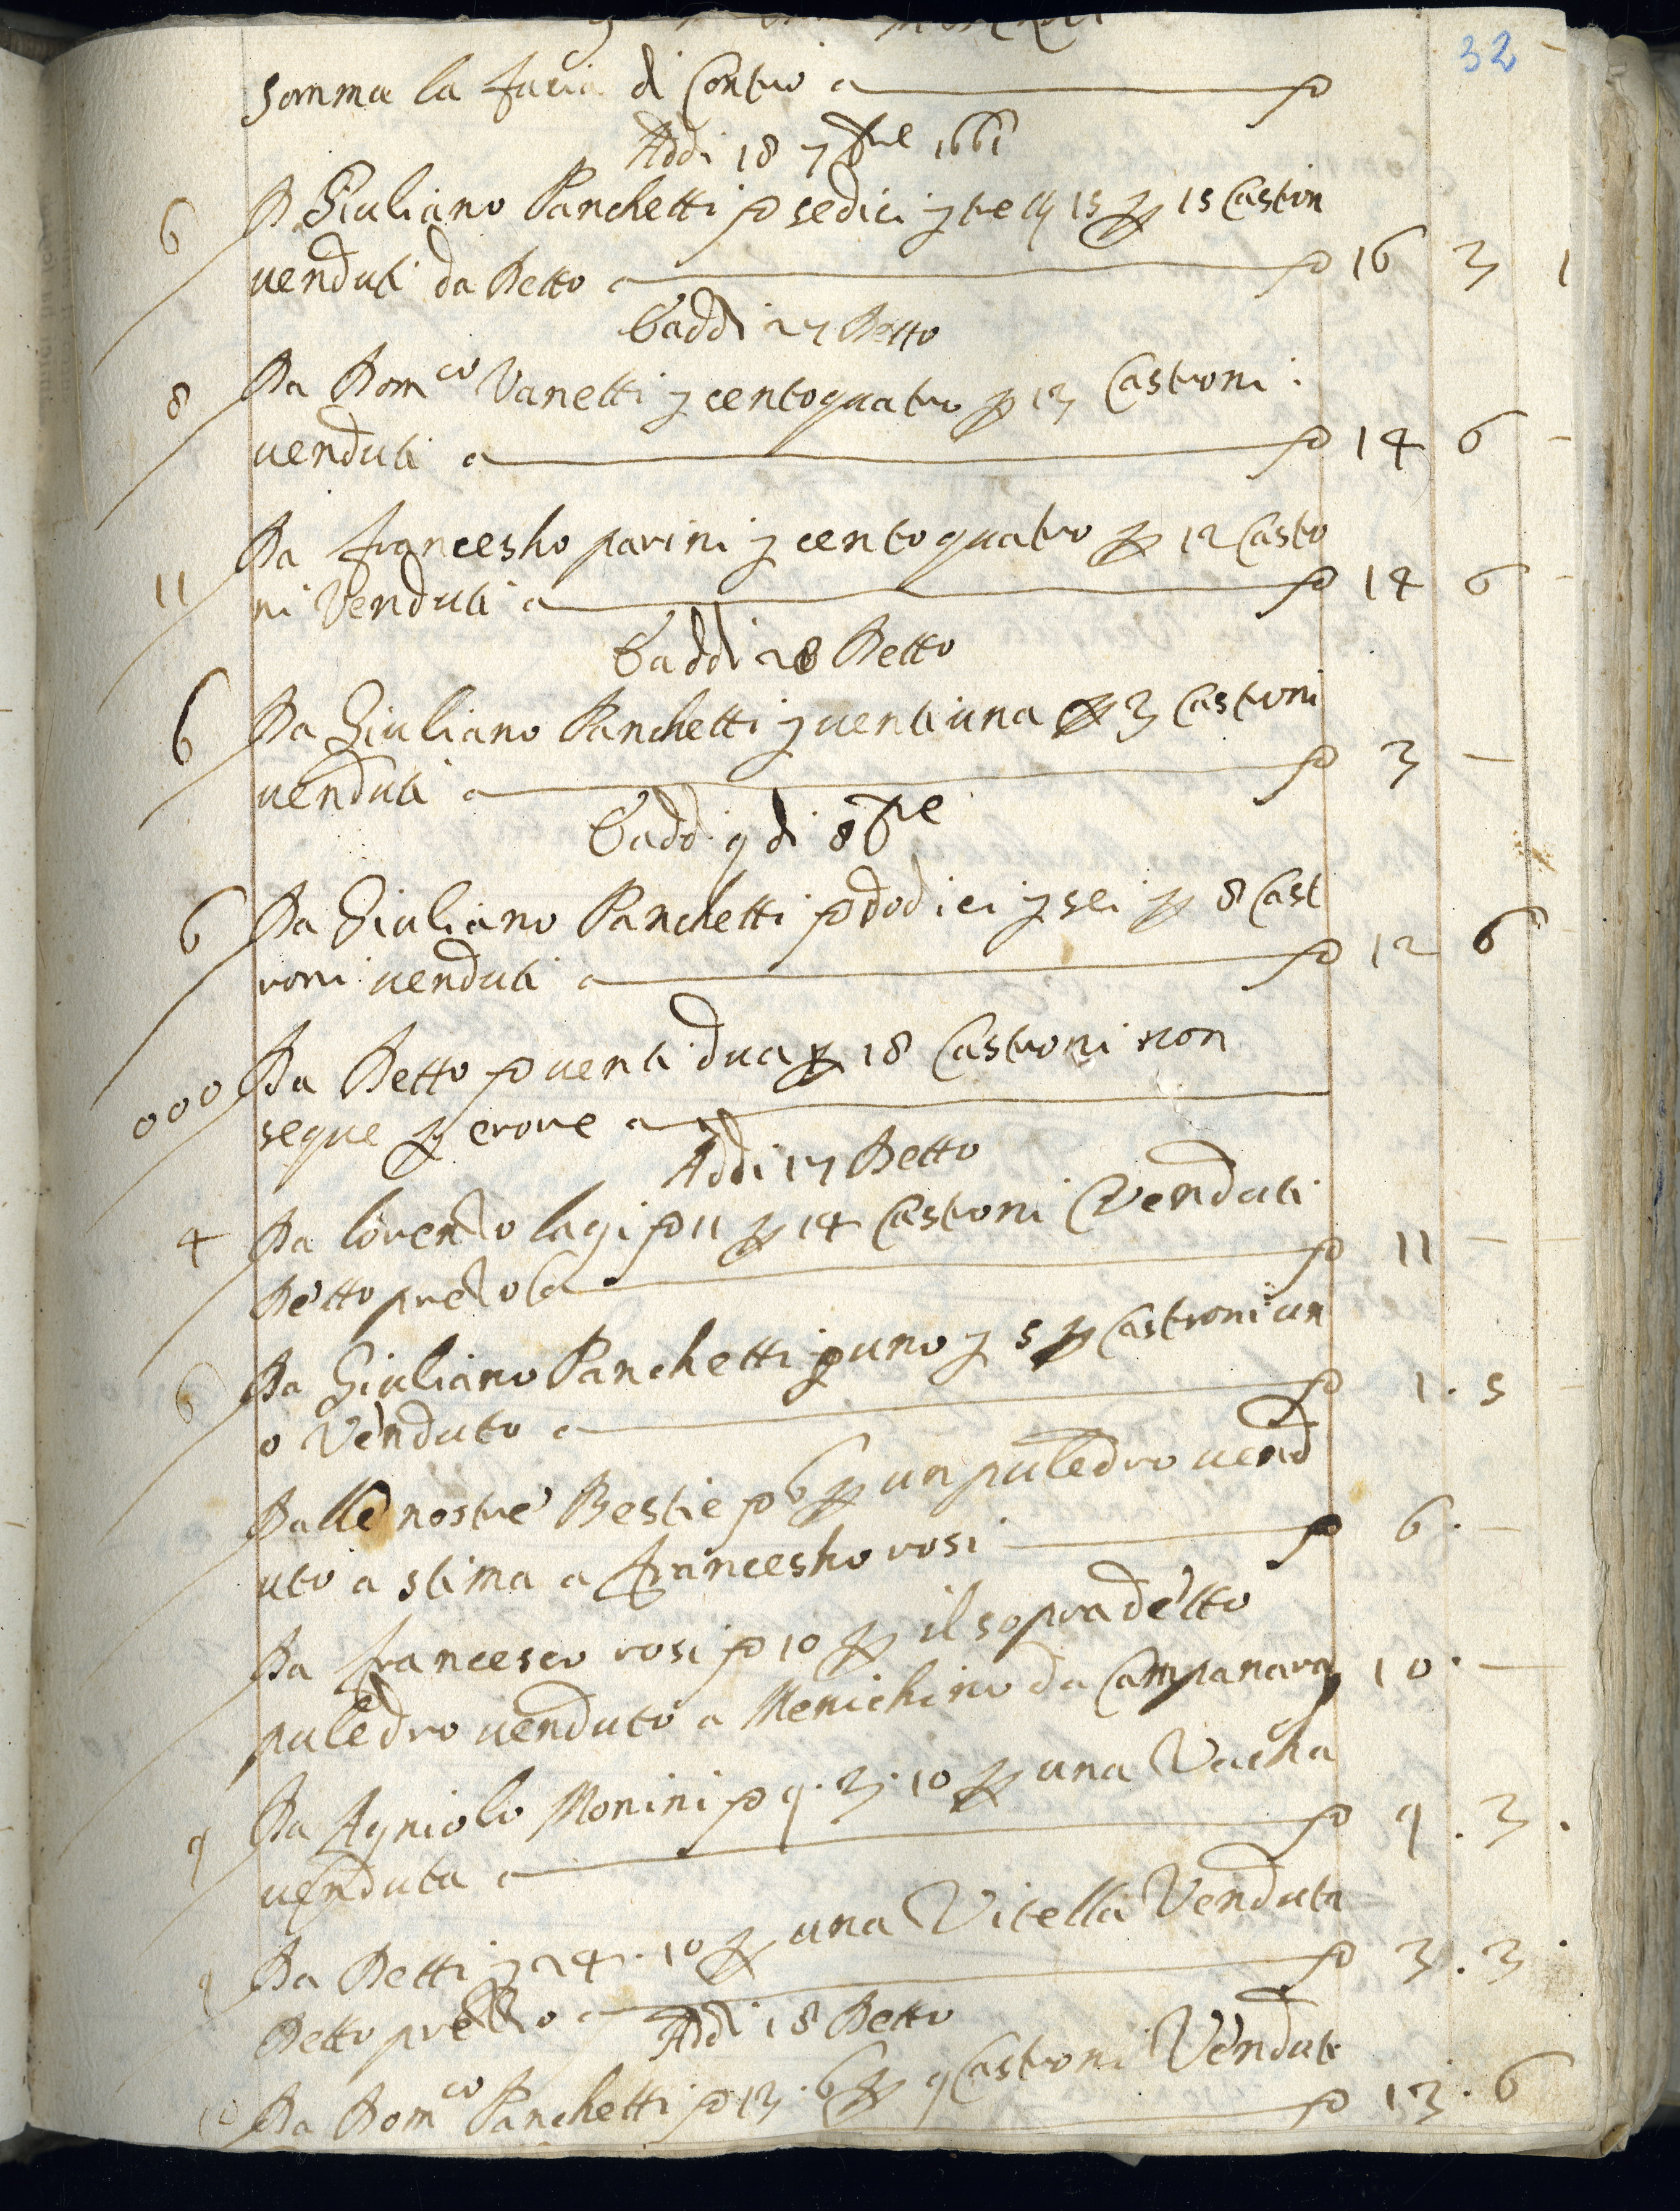 32
Somma la facia di Contro a
Addi 18 7bre 1661
6 D Giuliano Panchetti sedici tre 15 15 Caston
venduti da Detto a 16 3 1
E addi 27 Detto
8 Da Domco Vanetti centoquatro 13 Castroni
venduti a 14 6 -
Da francesho parini centoquatro 12 Casto
11 ni Venduti a 14 6 -
E addi 28 Detto
6 Da Giuliano Panchetti ventiuna 3 Castroni
venduti a 3 -
E addi 9 di 8bre
6 Da Giuliano Panchetti dodici sei 8 Cast
roni venduti a 12 6
000 Da Detto venti dua 18 Castroni non
segue erore a
Addi 17 Detto
4 Da lorenzo lagi 11 14 Castroni Venduti
Detto prezo a 11 -
6 Da Giuliano Panchetti uno 5 Castroni un
o Venduto a 1 . 5
Dalle nostre Bestie 6 un puledro vend
uto a stima a francesho rosi 6 . -
Da francesco rosi 10 il sopradetto
puledro venduto a Menichino da Campanara 10 . -
9 Da Agniolo Monini 9 . 3 . 10 una Vacha
venduta a 9 . 3 .
9 Da Detti 24 . 10 una Vitella Venduta
Detto prezzo a 3 . 3 .
Addi 18 Detto
10 Da Domco Panchetti 13 . 6 9 Castroni Venduti
13 . 6